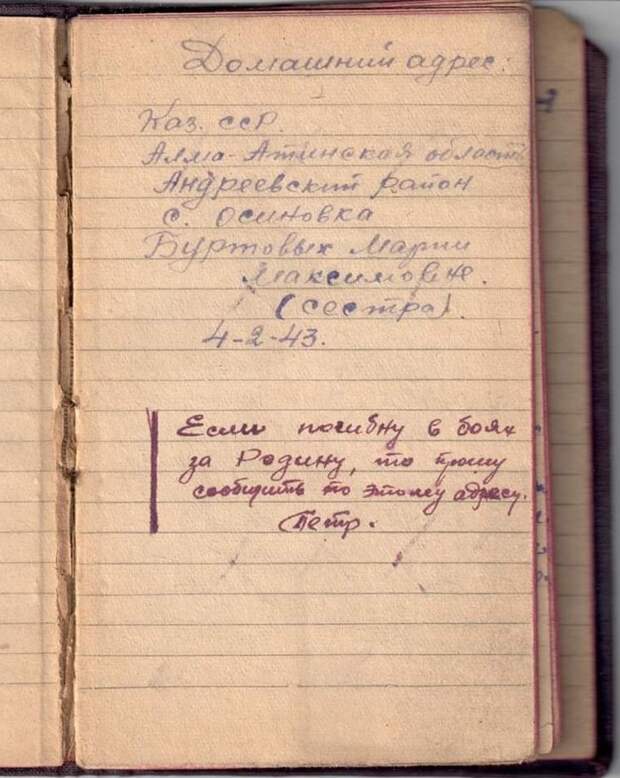 Домашний адрес:
Каз. ССР.
Алма-Атинская область
Андреевский район
с. Осиновка
Буртовых Марии
Максимовне.
(сестра).
4-2-43.
Если погибну в боях
за Родину, то прошу
сообщить по этому адресу.
Петр.